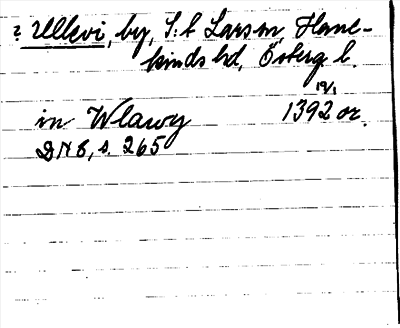 ? Ullevi, by, S:t Larsm, Hane-
kinds hd, Österg l.
19/1
in Wlawy 1392 or.
DN8, s. 265